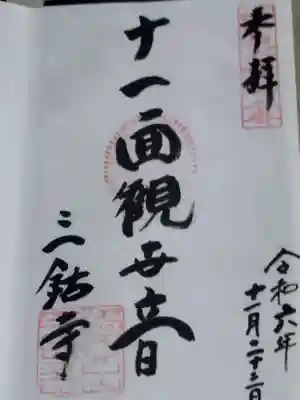 奉拝
令和六年
十一月二十三日
十一面観世音
三鈷寺